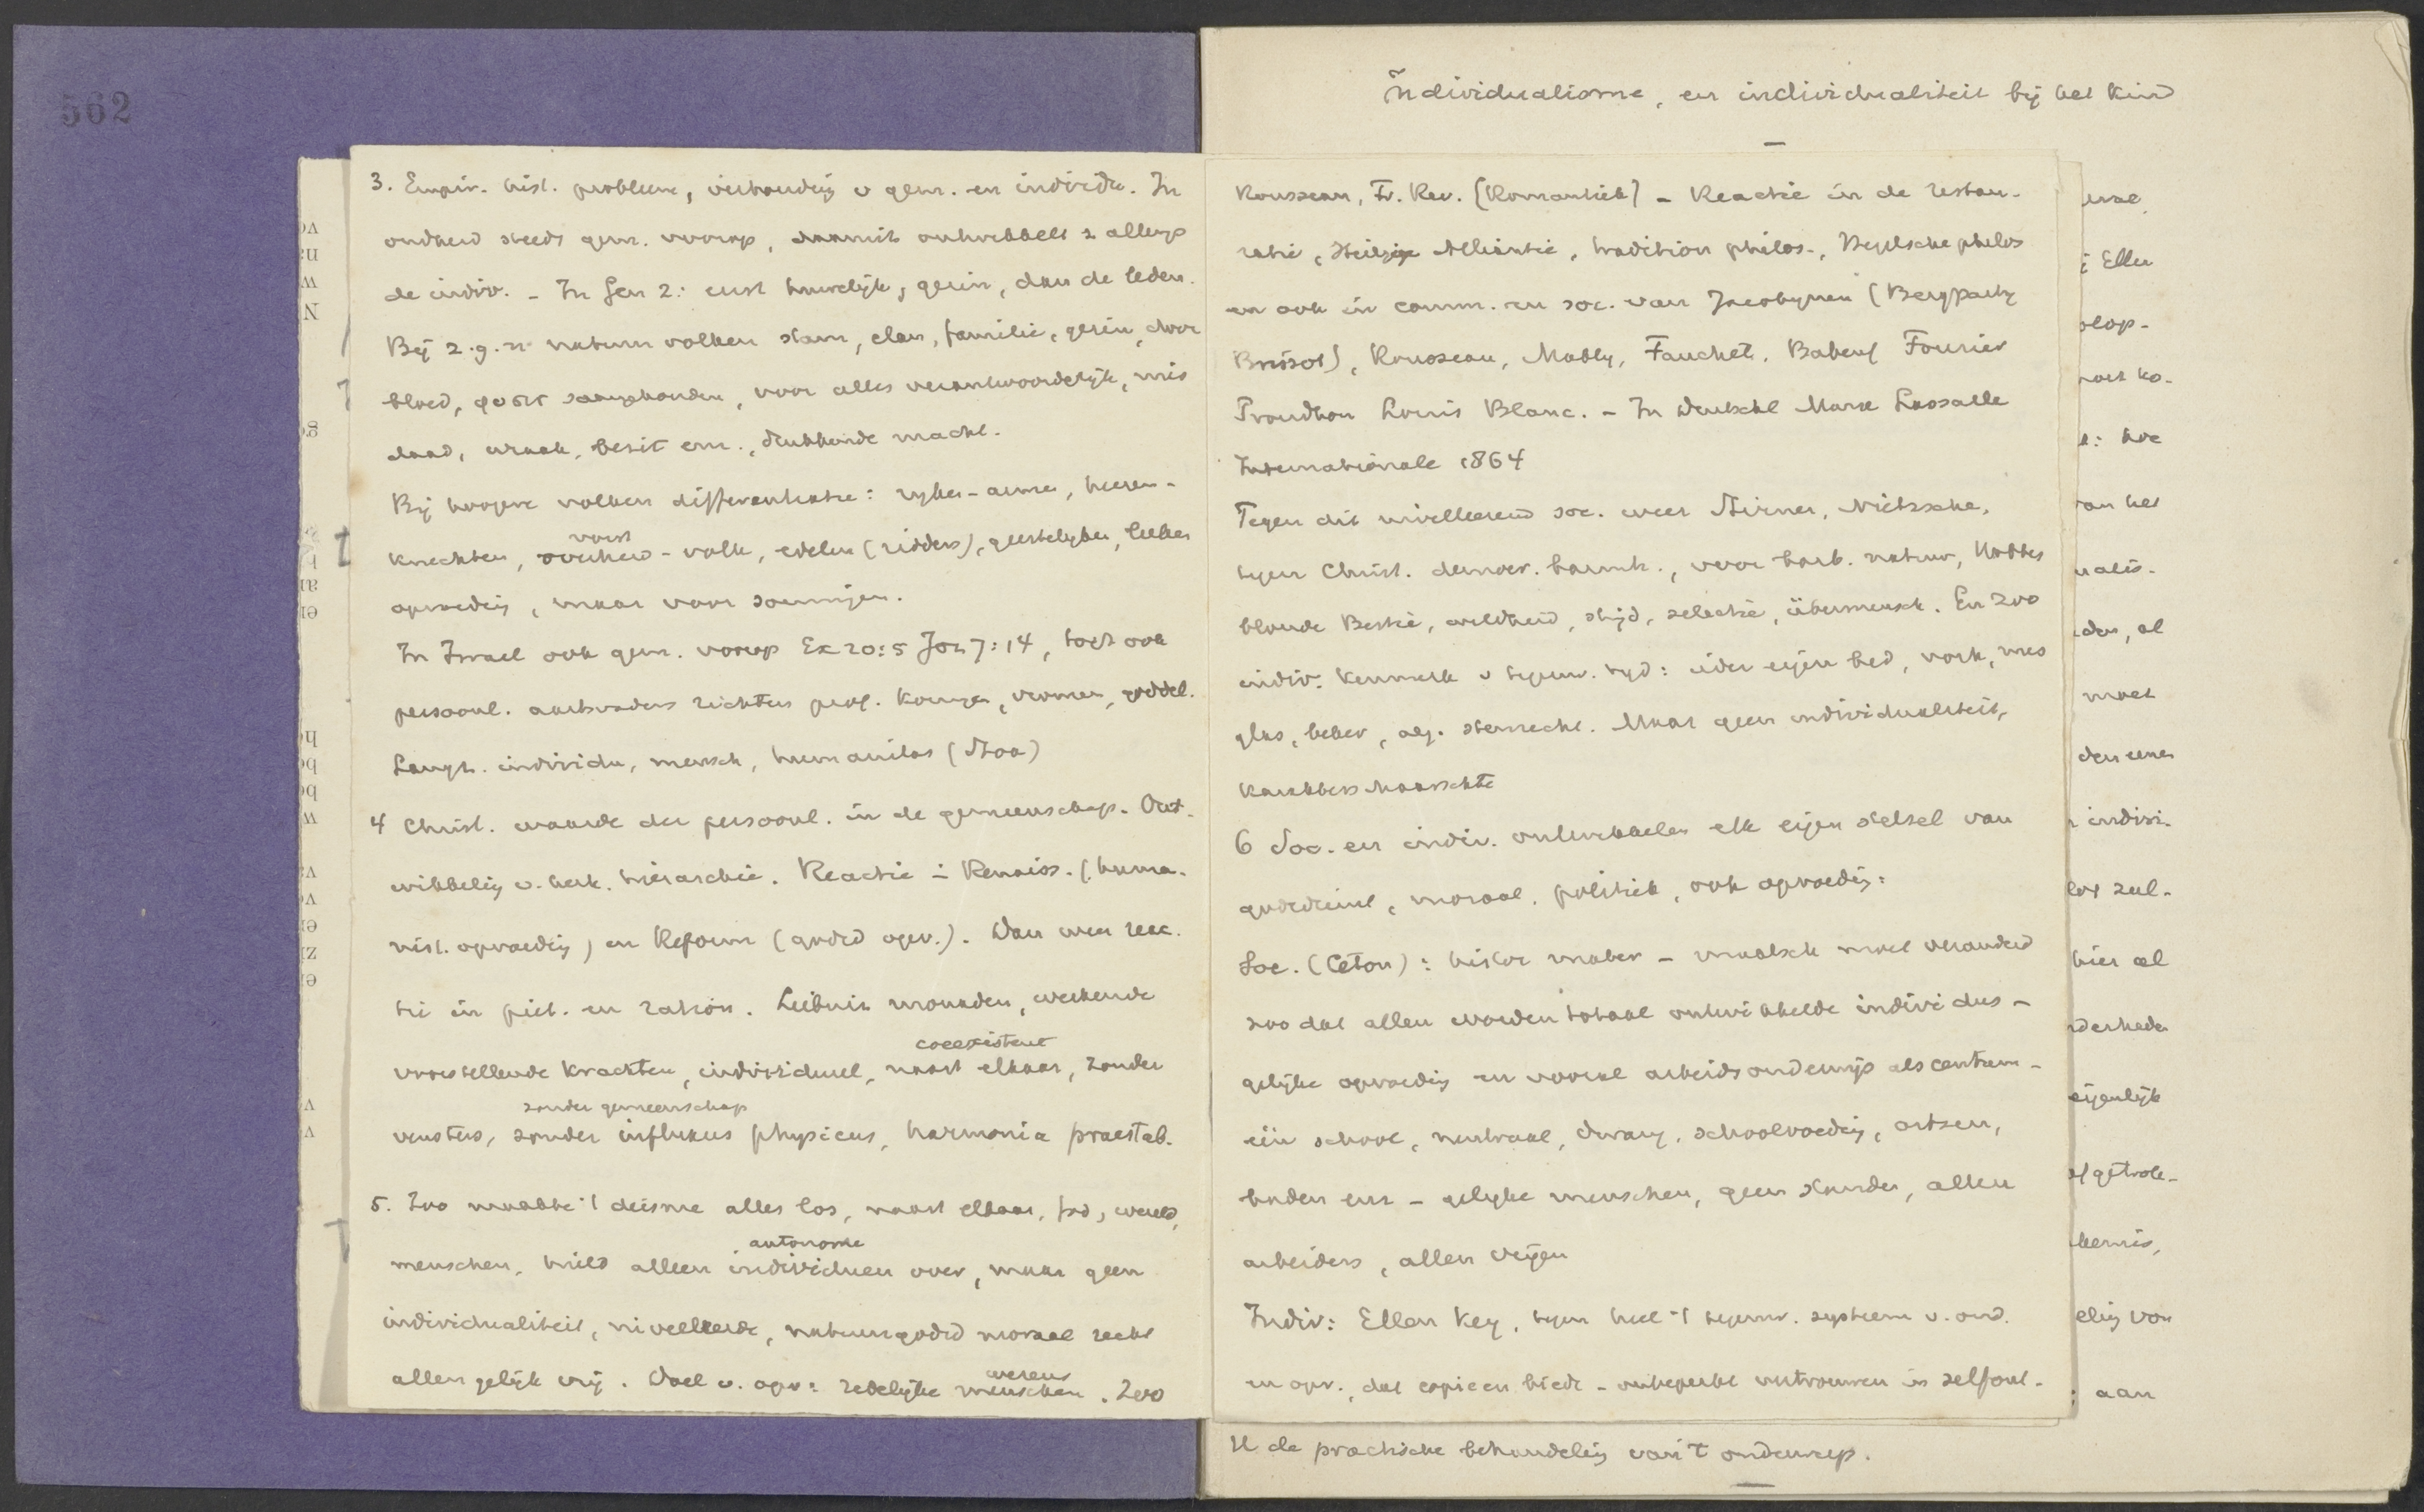 562
Individualisme, en individualiteit bij het kind
3. Empir. hist. probleem, verhoudig v gem. en individu. In
oudheid steeds gem. voorop, daaruit ontwikkelt z allengs
de indiv. - In Gen 2: eerst huwelijk, gezin, dan de leden.
Bij z.g.n. natuurvolken stam, clan, familie, gezin, door
bloed, godsd saamgehouden, voor alles verantwoordelijk, mis
daad, wraak, bezit enz., drukkende macht.
Bij hoogere volken differentiatie: ryken-armen, heeren-
vorst
knechten, overheid - volk, edelen (ridders), geestelyken, leeken
opvoedig, maar voor sommigen.
In Israel ook gem. voorop Ex 20:5 Joz 7:14, toch ook
persoonl. aartsvaders richters prof. koningen, vromen, goddel.
Langz. individu, mensch, humanitas (Stoa)
4 Christ. waarde der persoonl. in de gemeenschap. Ont-
wikkelig v. kerk. hierarchie. Reactie in Renaiss. (huma-
nist. opvoedig) en Reform (godsd opv.). Dan weer reac-
tie in piet. en ration. Leibniz monaden, werkende
coëexistent
voorstellende krachten, individueel, naast elkaar, zonder
zonder gemeenschap
vensters, zonder influxus physicus, harmonia praestab.
5. Zoo maakte 't deisme alles los, naast elkaar, God, wereld,
autonome
menschen, hield alleen individuen over, maar geen
individualiteit, nivelleerde, natuurgodsd moraal recht
wezens
allen gelijk vrij. Doel v. opv: redelijke menschen. Zoo
Rousseau, Fr. Rev. [Romantiek] - Reactie in de restau-
ratie, Heilige Alliantie, tradition philos., Hegelsche philos
en ook in comm. en soc. van Jacobynen (Bergparty
Brissot), Rousseau, Mably, Fauchet, Babeuf Fourier
Proudhon Louis Blanc. - In Deutschl Marx Lassalle
Internationale 1864
Tegen dit nivelleerend soc. weer Stirner, Nietzsche,
tegen Christ. democr. barmh., voor barb. natuur, Hobbes
blonde Bestie, wildheid, strijd, selectie, übermensch. En zoo
indiv. kenmerk v tegenw. tyd: ieder eigen bed, vork, mes
glas, beker, alg. stemrecht. Maar geen individualiteit,
karakters maarschte
6 Soc. en indiv. ontwikkelen elk eigen stelsel van
godsdienst, moraal, politiek, ook opvoedig:
Soc. (Ceton): histor mater - maatsch moet veranderd
zoo dat allen worden totaal ontwikkelde individus -
gelijke opvoedig en vooral arbeidsonderwijs als centrum -
één school, neutraal, dwang, schoolvoedig, artsen,
baden enz - gelyke menschen, geen standen, allen
arbeiders, allen vrijen
Indiv: Ellen Key, tegen heel 't tegenw. systeem v. ond.
en opv., dat copieen biedt - onbeperkt vertrouwen in zelfont-
; Ellen
van het
moet
indivi-
hier al
eigenlijk
kennis,
elig van
; aan
II de practische behandelig van 't onderwerp.